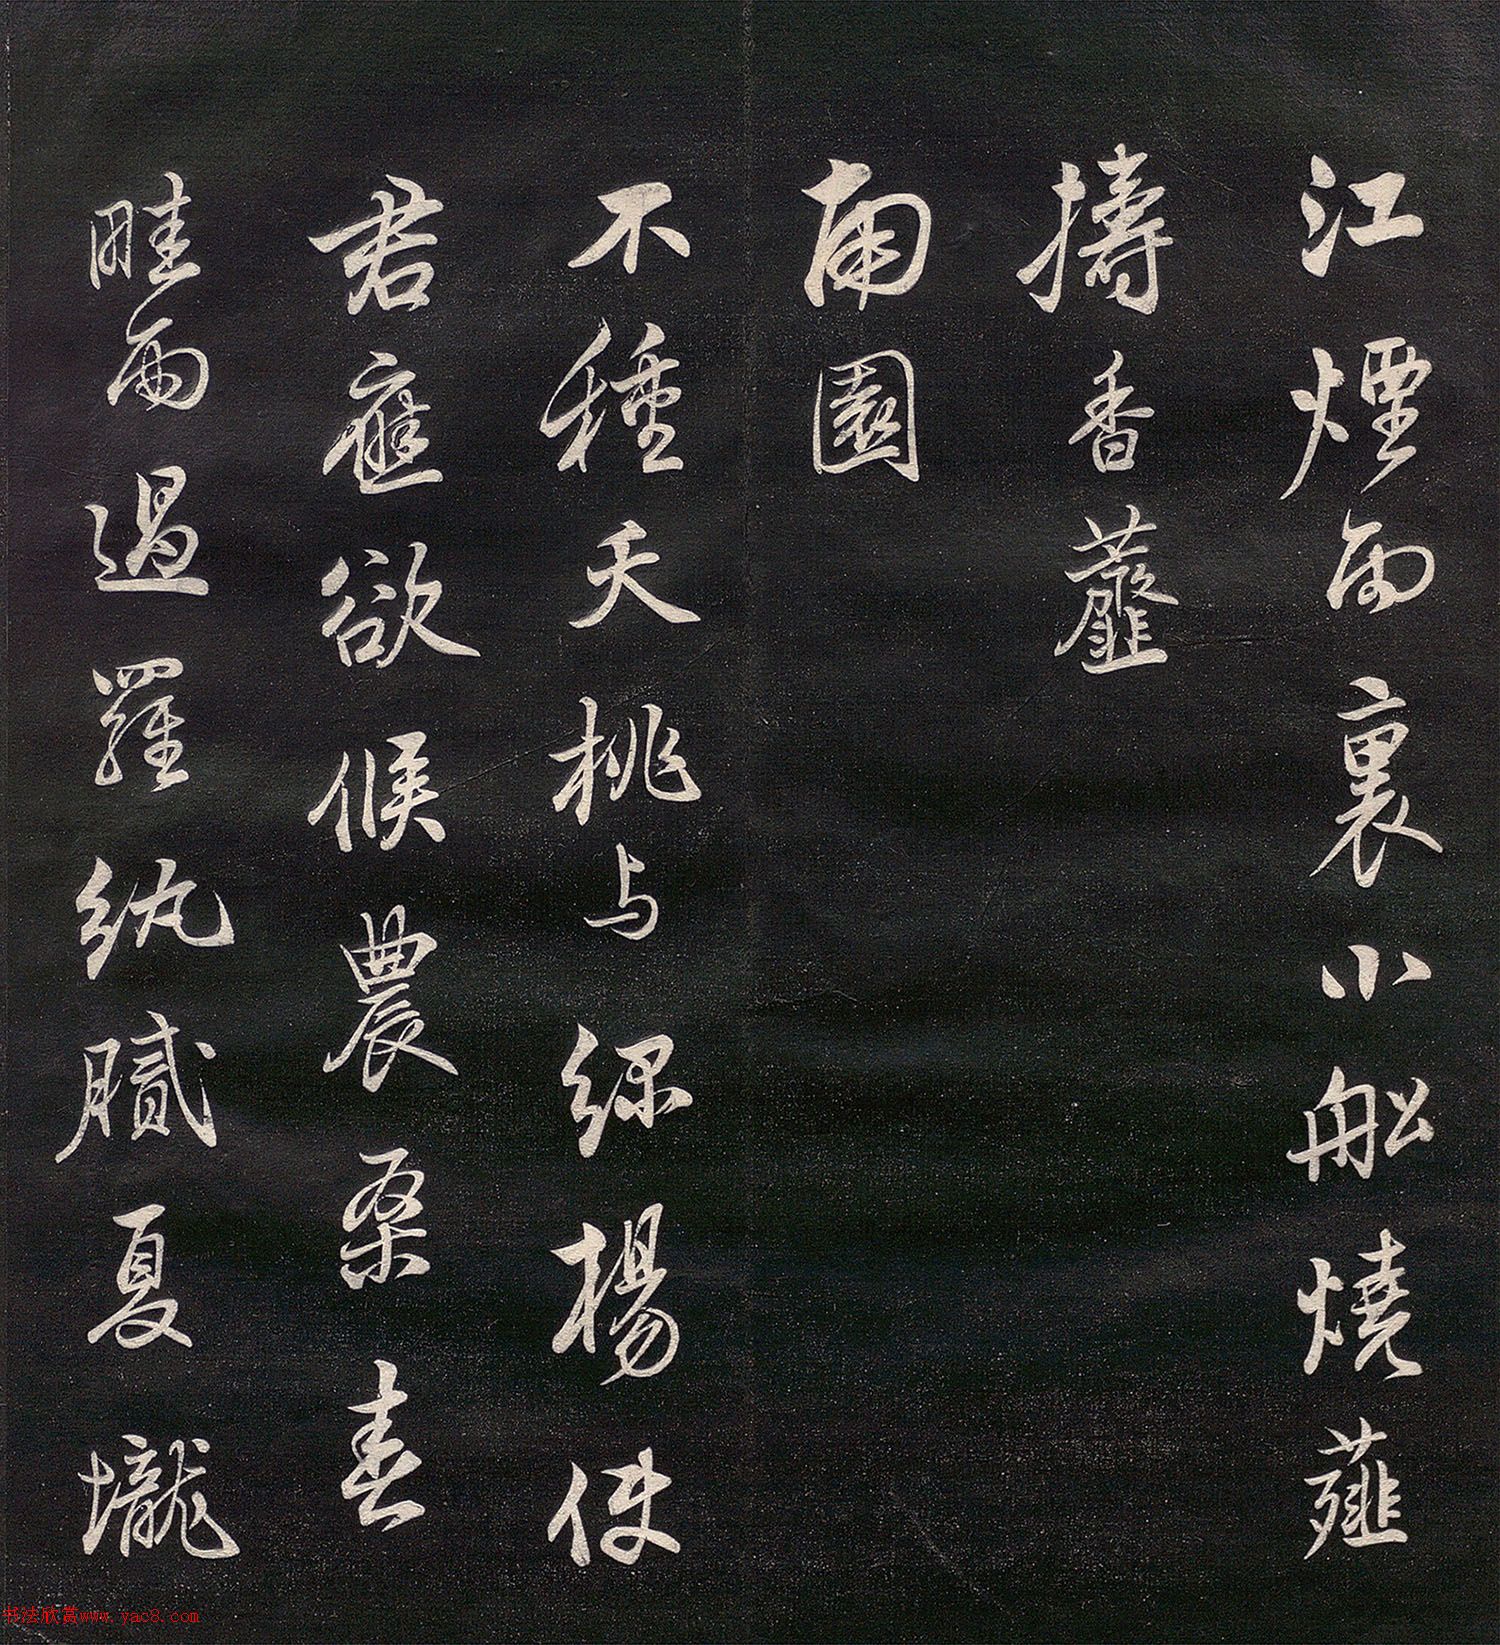 江煙雨裏小船燒薤
擣香虀
南園
不種夭桃与綠楊使
君應欲候農桑春
畦雨過羅紈膩夏壠
书法欣赏www.yac8.com